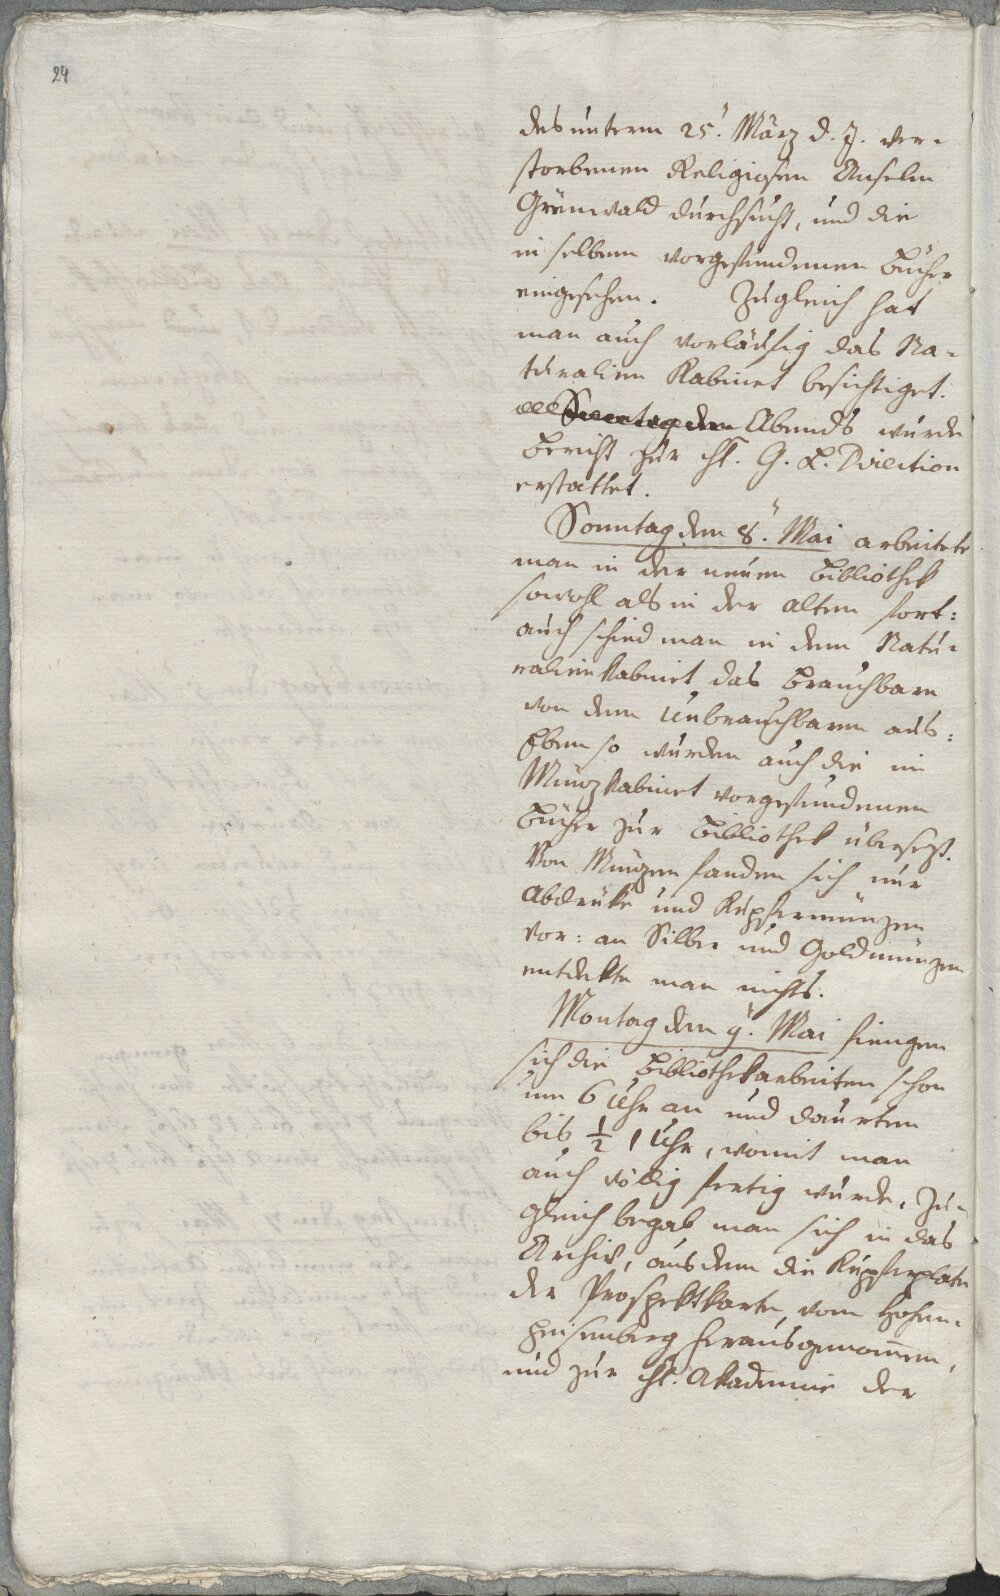 24
des unterm 25. März d. J. ver-
storbenen Religiosen Anselm
Grünwald durchsucht, und die
in selbem vorgefundenen Bücher
eingesehen. Zugleich hat
man auch vorläufig das Na-
turalien Kabinet besichtiget.
Abends wurde
Bericht zur chf. G. L. Direction
erstattet.
Sonntag den 8. Mai arbeitete
man in der neuen Bibliothek
sowohl als in der alten fort:
auch schied man in dem Natu-
ralienkabinet das Brauchbare
von dem Unbrauchbaren aus:
Eben so wurden auch die im
Münzkabinet vorgefundenen
Bücher zur Bibliothek übersezt.
Von Münzen fanden sich nur
Abdrüke und Kupfermünzen
vor: an Silber und Goldmünzen
entdekte man nichts.
Montag den 9. Mai fiengen
sich die Bibliothekarbeiten schon
um 6 Uhr an und daurten
bis ½ 1 Uhr, womit man
auch völlig fertig wurde. Zu-
gleich begab man sich in das
Archiv, aus dem die Kupferplate
der Prospektkarte vom Hohen-
peisenberg herausgenom̅en,
und zur chf. Akademie der